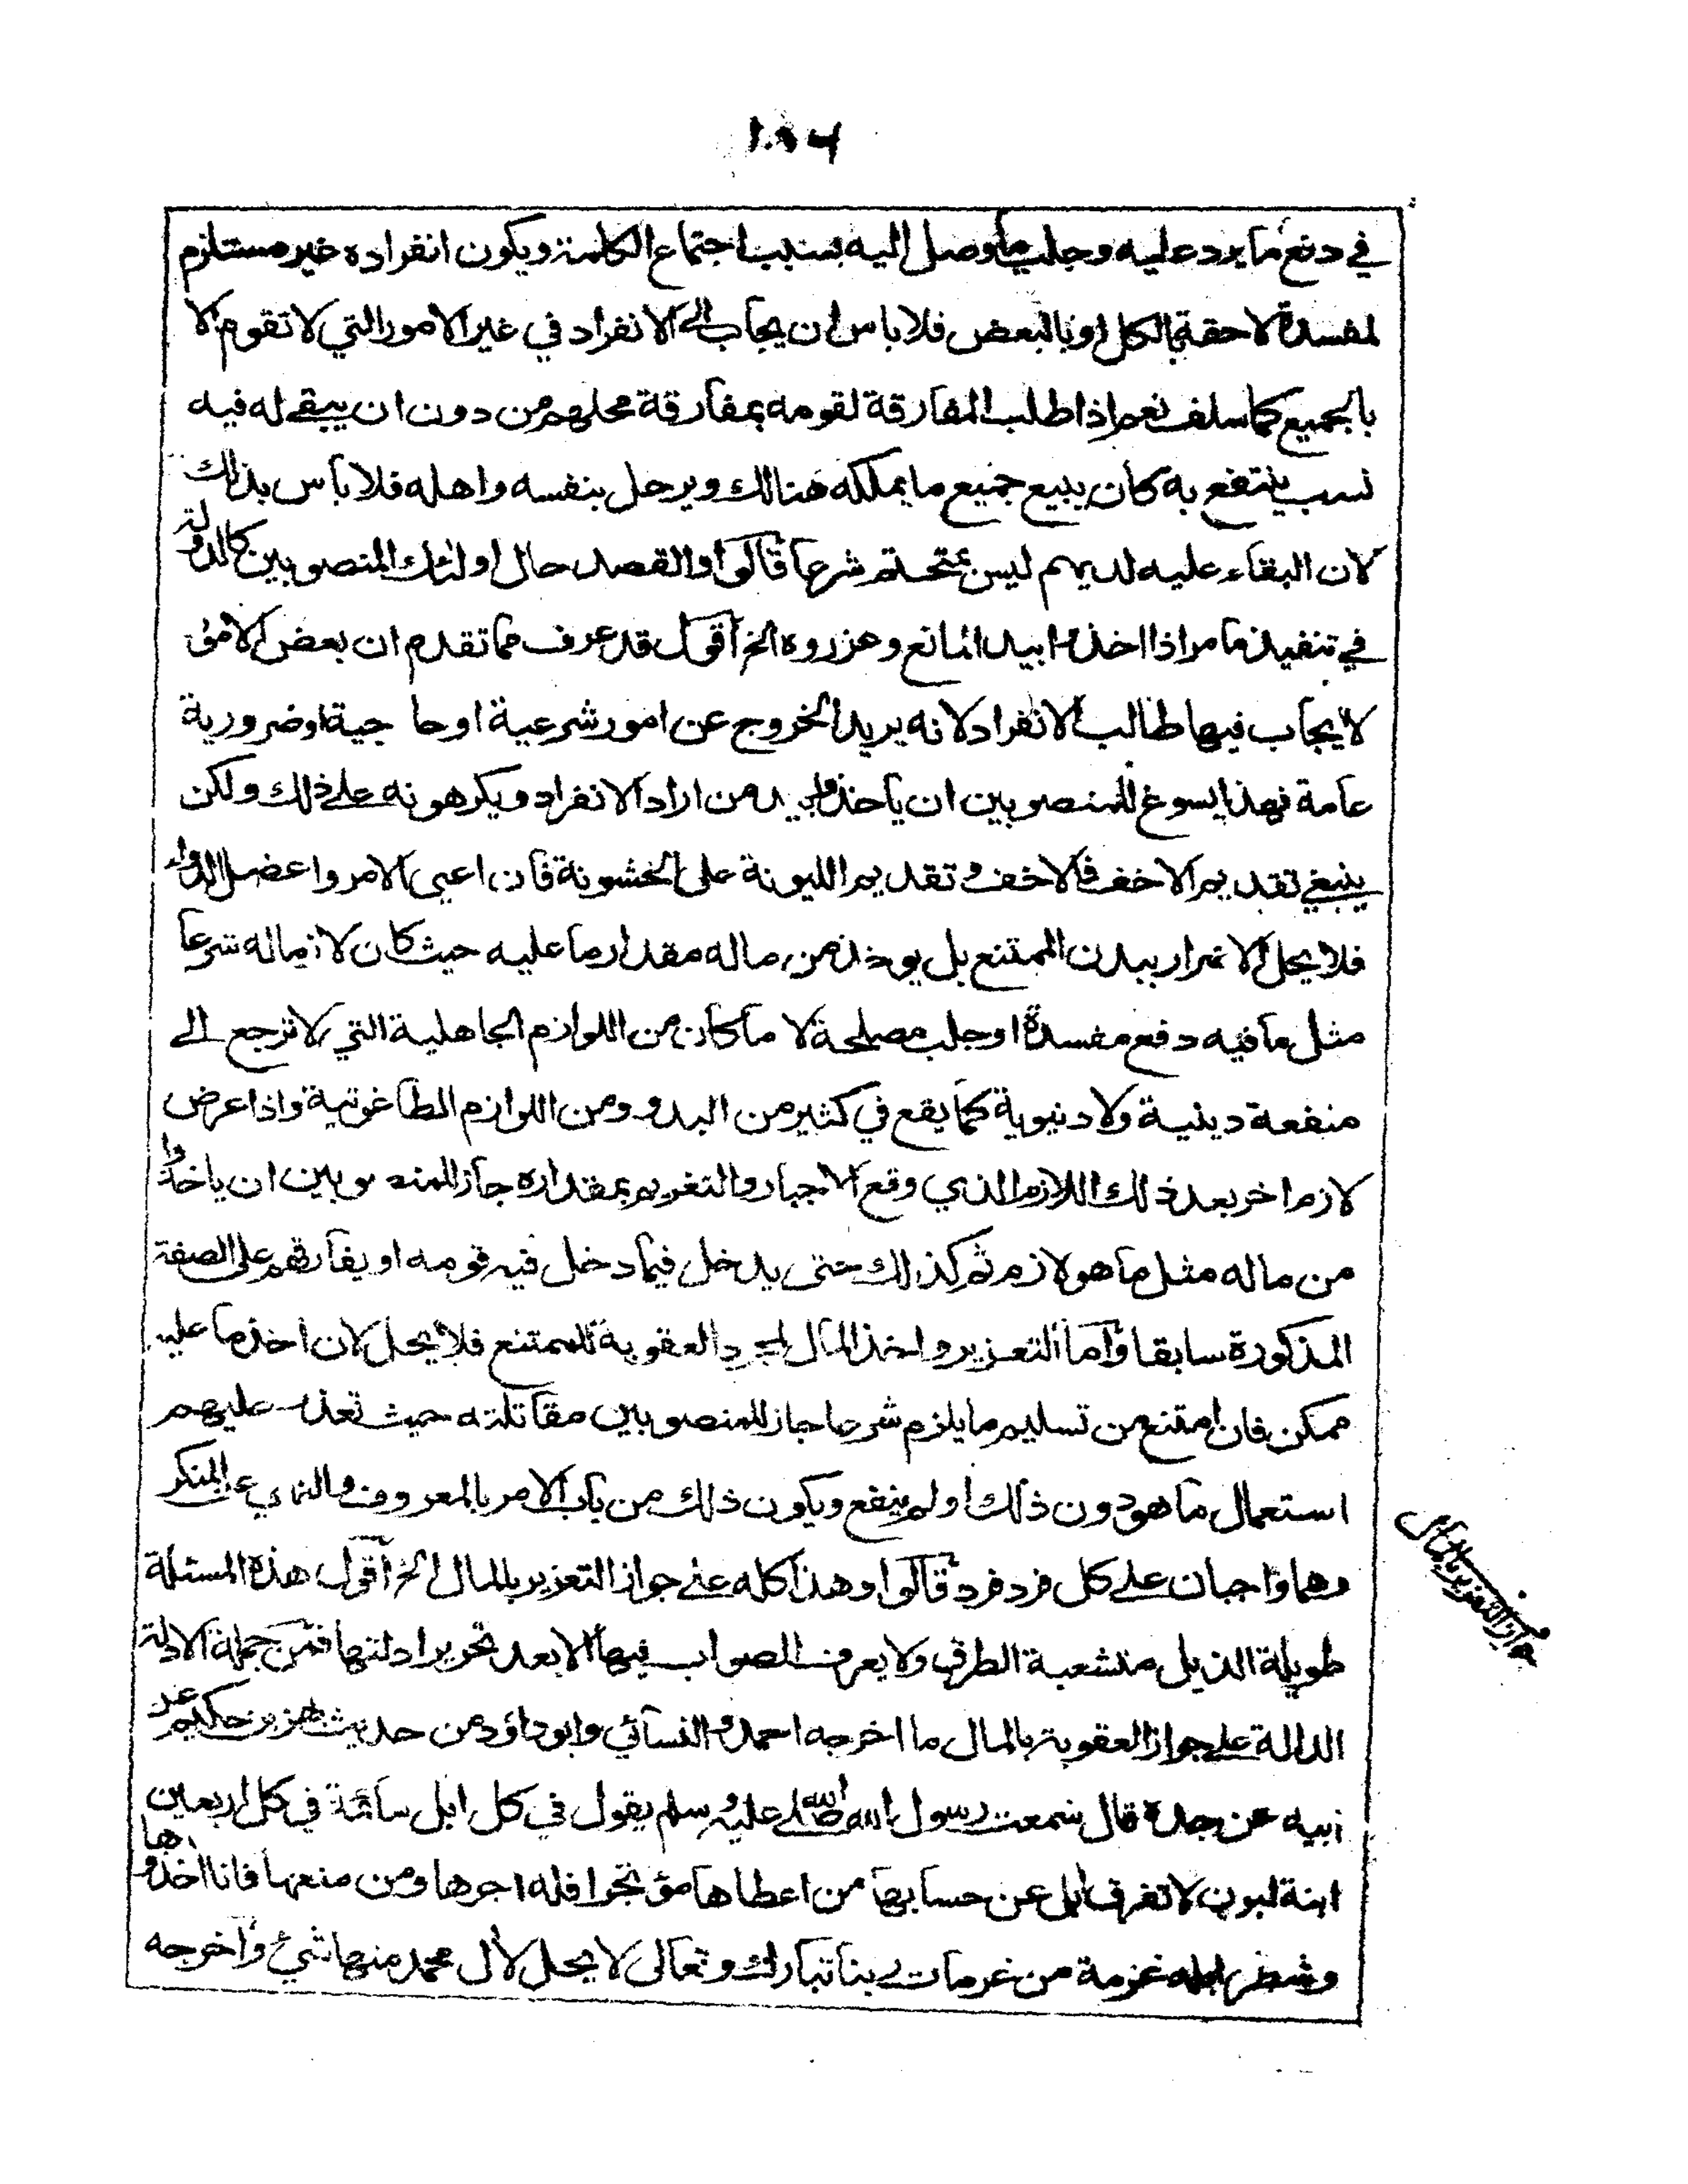 في دفع ما يرد عليه وجلب ما وصل اليه بسبب اجتماع الكلمة ويكون انفراده غير مستلزم
لمفسدة لاحقة بالكل او بالبعض فلا باس ان يجاب الى الانفراد في غير الامور التي لا تقوم الا
بالجميع كما سلف نعم اذا طلب المفارقة لقومه بمفارقة محلهم من دون ان يبقى له فيه
نسب ينتفع به كان يبيع جميع ما يملكه هنالك ويرحل بنفسه واهله فلا باس بذلك
لان البقاء عليه لديهم ليس بمتحتم شرعا قالوا والقصد حال اولئك المنصوبين كالدولة
في تنفيذ ما مر اذا اخذوا بيد المانع وعزروه الخ اقول قد عرف مما تقدم ان بعض الامور
لا يجاب فيها طالب الانفراد لانه يريد الخروج عن امور شرعية او حاجية او ضرورية
عامة فهذا يسوغ للمنصوبين ان ياخذوا بيد من اراد الانفراد ويكرهونه على ذلك ولكن
ينبغي تقديم الاخف فالاخف وتقديم الليونة على الخشونة فان اعيى الامر واعضل الدواء
فلا يحل الاضرار ببدن الممتنع بل يوخذ من ماله مقدار ما عليه حيث كان لازما له شرعا
مثل ما فيه دفع مفسدة او جلب مصلحة لا ما كان من اللوازم الجاهلية التي لا ترجع الى
منفعة دينية ولا دنيوية كما يقع في كثير من البدو ومن اللوازم الطاغوتية واذا عرض
لازم اخر بعد ذلك اللازم الذي وقع الاجبار والتغريم بمقداره جاز للمنصوبين ان ياخذوا
من ماله مثل ما هو لازم ثم كذلك حتى يدخل فيما دخل فيه قومه او يفارقهم على الصفة
المذكورة سابقا واما التعزير واخذ المال لمجرد العقوبة للممتنع فلا يحل لان اخذ ما عليه
ممكن فان امتنع من تسليم ما يلزم شرعا جاز للمنصوبين مقاتلته حيث تعذر عليهم
استعمال ما هو دون ذلك او لم ينفع ويكون ذلك من باب الامر بالمعروف والنهي عن المنكر
وهما واجبان على كل فرد فرد قالوا وهذا كله على جواز التعزير بالمال الخ اقول هذه المسئلة
طويلة الذيل متشعبة الطرق ولا يعرف الصواب فيها الا بعد تحرير ادلتها فمن جملة الادلة
الدالة على جواز العقوبة بالمال ما اخرجه احمد والنسائي وابو داؤد من حديث بهز بن حكيم عن
ابيه عن جده قال سمعت رسول الله صلى الله عليه وسلم يقول في كل ابل سائمة في كل اربعين
ابنة لبون لا تفرق ابل عن حسابها من اعطاها مؤتجرا فله اجرها ومن منعها فانا اخذوها
وشطر ابله عزمة من عزمات ربنا تبارك وتعالى لا يحل لال محمد منها شيئ واخرجه
جواز التعزير بالمال